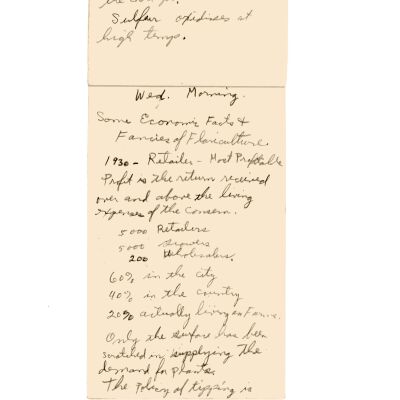 Sulfur oxidises at
high temps.
Wed. Morning.
Some Economic Facts &
Fancies of Floriculture.
1930 - Retailer - Most Profitable
Profit is the return received
over and above the living
expenses of the concern.
5000 Retailers
5000 Growers
200 Wholesalers.
60% in the city
40% in the country
20% actually living on Farms.
Only the surface has been
scratched in supplying the
demand for plants.
The Policy of tipping is